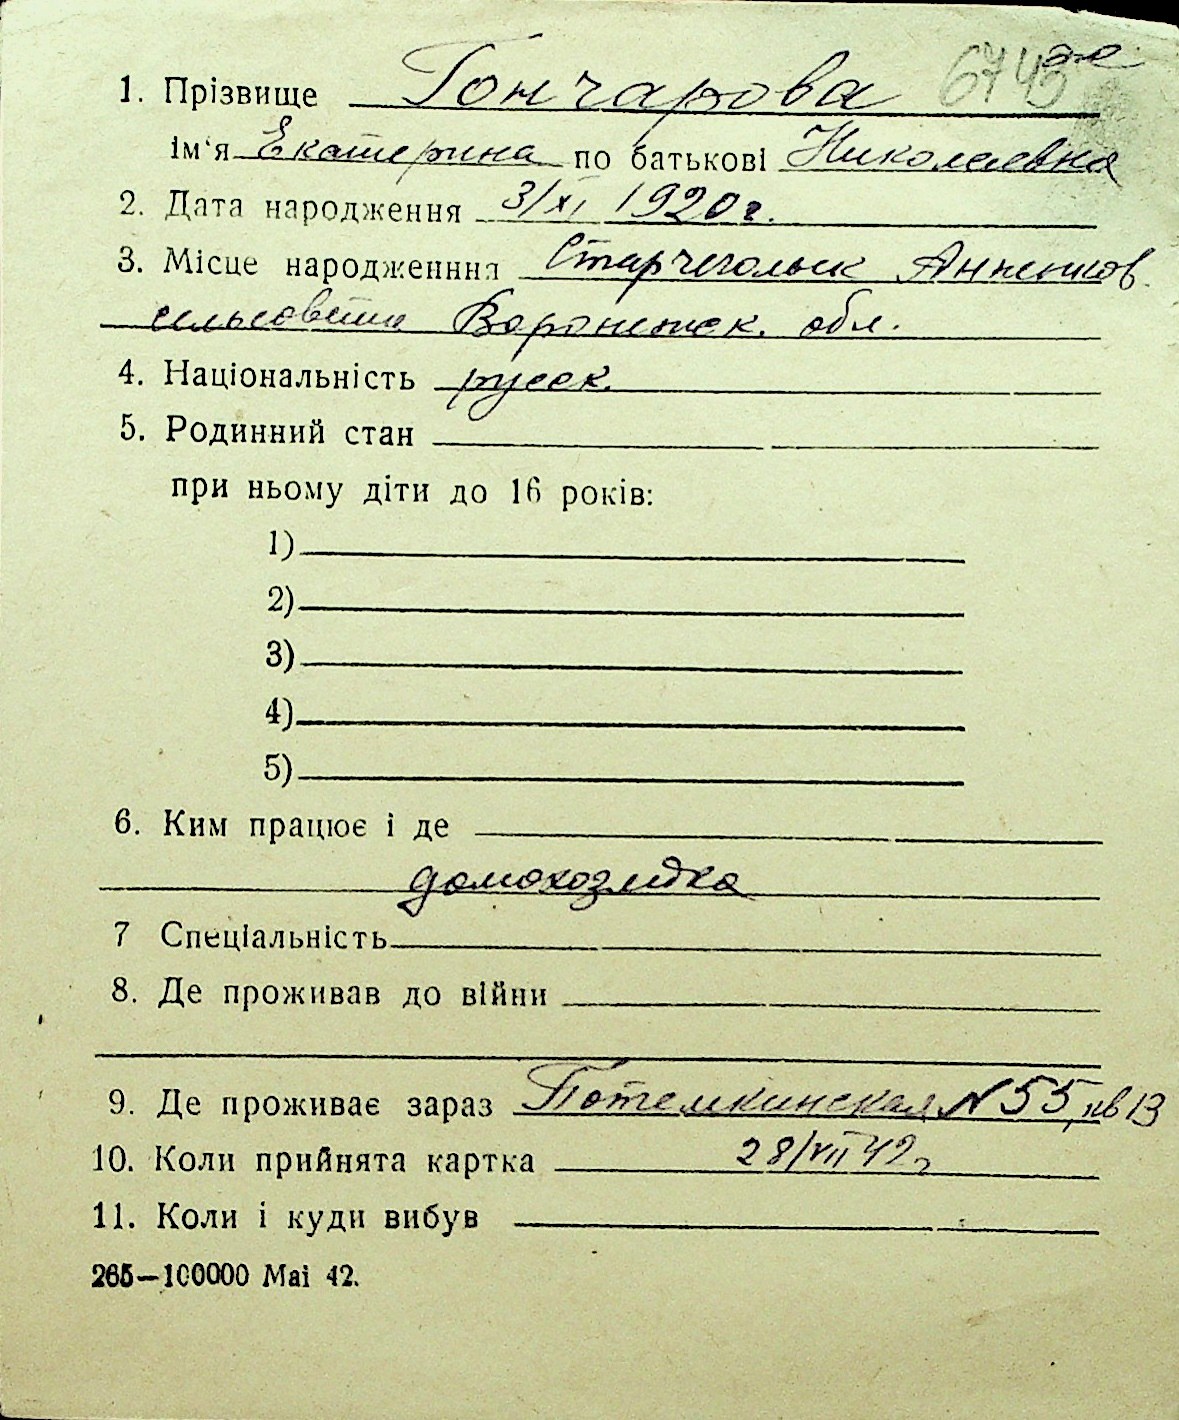 6745
1. Прізвище Гончарова
ім'я Екатерина по батькові Николаевна
2. Дата народження 3/XI 1920 г.
3. Місце народженння
Воронежск. обл.
4. Національність русск.
5. Родинний стан
при ньому діти до 16 років:
1)
2)
3)
4)
5)
6. Ким працює і де
домохозяйка
7 Спеціальність
8. Де проживав до війни
9. Де проживає зараз Потемкинская N 55, кв 13
10. Коли прийнята картка 28/VII 42 г
11. Коли і куди вибув
265—100000 Маі 42.